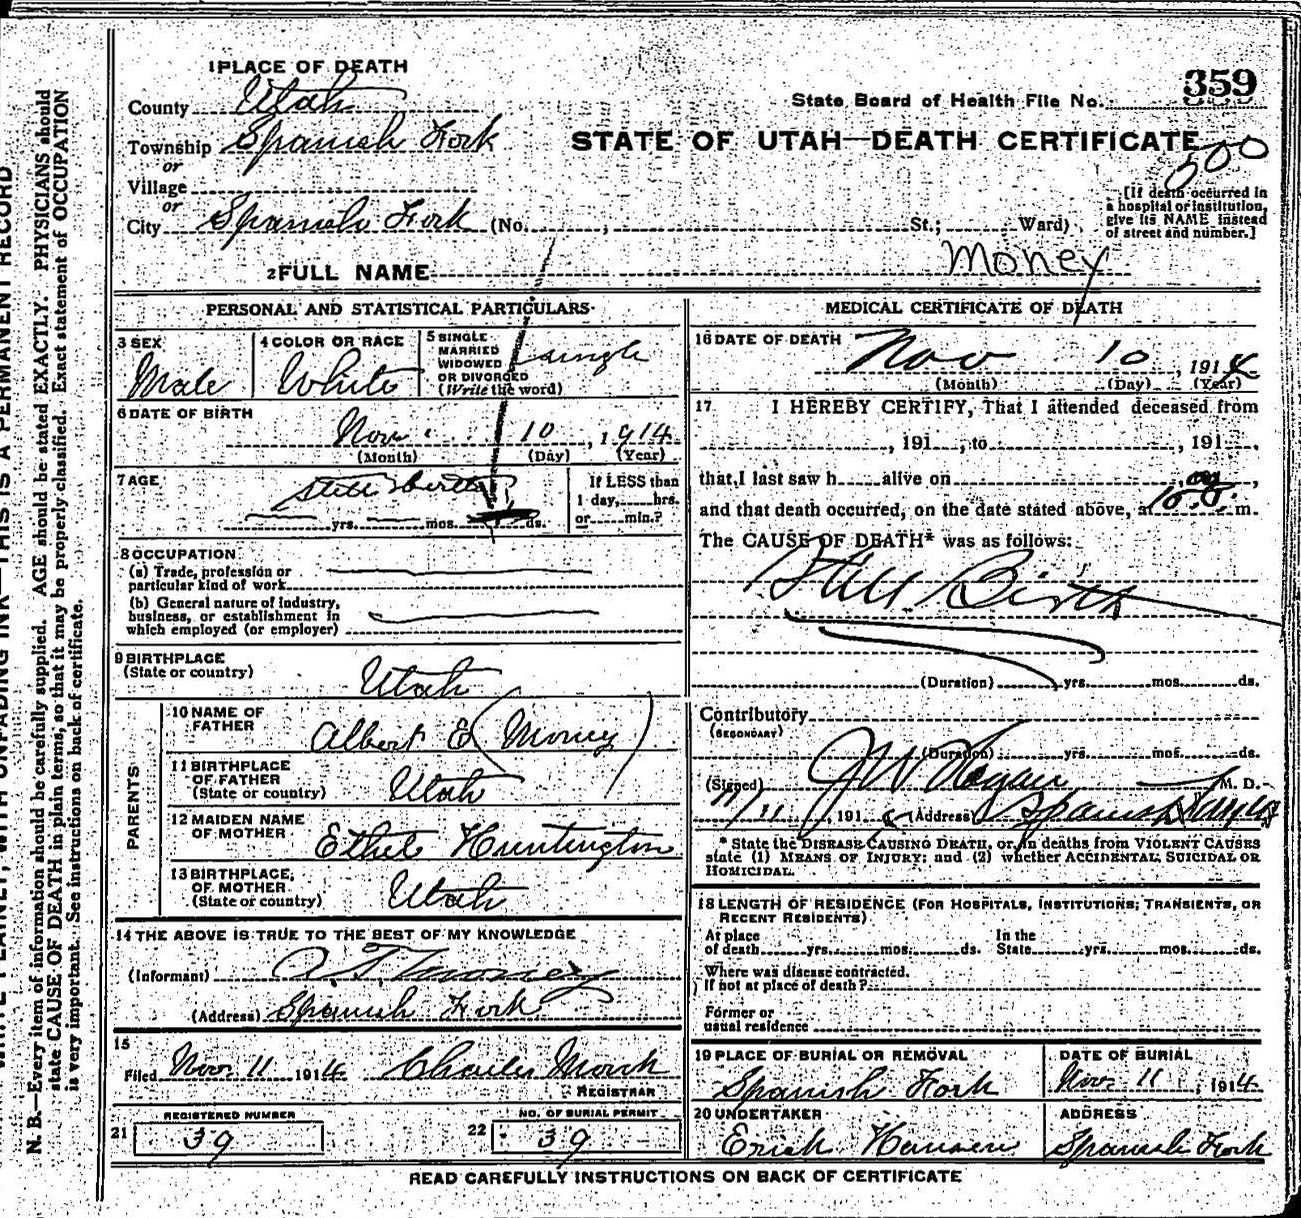 1 PLACE OF DEATH
County Utah
Township Spanish Fork
or
Village
or
City Spanish Fork (No. , St.; Ward)
State Board of Health File No. 359
STATE OF UTAH—DEATH CERTIFICATE
[If death occurred in
a hospital or institution,
give its NAME instead
of street and number.]
2 FULL NAME Money
PERSONAL AND STATISTICAL PARTICULARS
3 SEX
Male
4 COLOR OR RACE
White
5 SINGLE
MARRIED
WIDOWED
OR DIVORCED
(Write the word)
single
6 DATE OF BIRTH
Nov. 10, 1914
(Month) (Day) (Year)
7 AGE
Still birth
yrs. mos. ds.
If LESS than
1 day, hrs.
or min.?
8 OCCUPATION
(a) Trade, profession or
particular kind of work
(b) General nature of industry,
business, or establishment in
which employed (or employer)
9 BIRTHPLACE
(State or country)
Utah
PARENTS
10 NAME OF
FATHER
Albert E (Money)
11 BIRTHPLACE
OF FATHER
(State or country)
Utah
12 MAIDEN NAME
OF MOTHER
Ethel Huntington
13 BIRTHPLACE,
OF MOTHER
(State or country)
Utah
14 THE ABOVE IS TRUE TO THE BEST OF MY KNOWLEDGE
(Informant) Money
(Address) Spanish Fork
15
Filed Nov. 11 1914 Charles Monk
REGISTRAR
REGISTERED NUMBER
21 39
NO. OF BURIAL PERMIT
22 39
MEDICAL CERTIFICATE OF DEATH
16 DATE OF DEATH
Nov 10, 1914
(Month) (Day) (Year)
17 I HEREBY CERTIFY, That I attended deceased from
, 191 , to , 191 ,
that I last saw h alive on ,
and that death occurred, on the date stated above, at m.
The CAUSE OF DEATH* was as follows:
Still Birth
(Duration) yrs. mos. ds.
Contributory
(SECONDARY)
(Duration) yrs. mos. ds.
(Signed) J W Hagan M. D.
11/11, 191 (Address) Spanish
* State the DISEASE CAUSING DEATH, or, in deaths from VIOLENT CAUSES
state (1) MEANS OF INJURY; and (2) whether ACCIDENTAL, SUICIDAL OR
HOMICIDAL.
18 LENGTH OF RESIDENCE (FOR HOSPITALS, INSTITUTIONS, TRANSIENTS, OR
RECENT RESIDENTS)
At place In the
of death yrs. mos. ds. State yrs. mos. ds.
Where was disease contracted.
If not at place of death?
Former or
usual residence
19 PLACE OF BURIAL OR REMOVAL
Spanish Fork
DATE OF BURIAL
Nov. 11, 1914
20 UNDERTAKER
Erick Hansen
ADDRESS
Spanish Fork
READ CAREFULLY INSTRUCTIONS ON BACK OF CERTIFICATE
N. B.—Every item of information should be carefully supplied. AGE should be stated EXACTLY. PHYSICIANS should
state CAUSE OF DEATH in plain terms, so that it may be properly classified. Exact statement of OCCUPATION
is very important. See instructions on back of certificate.
THIS IS A PERMANENT RECORD